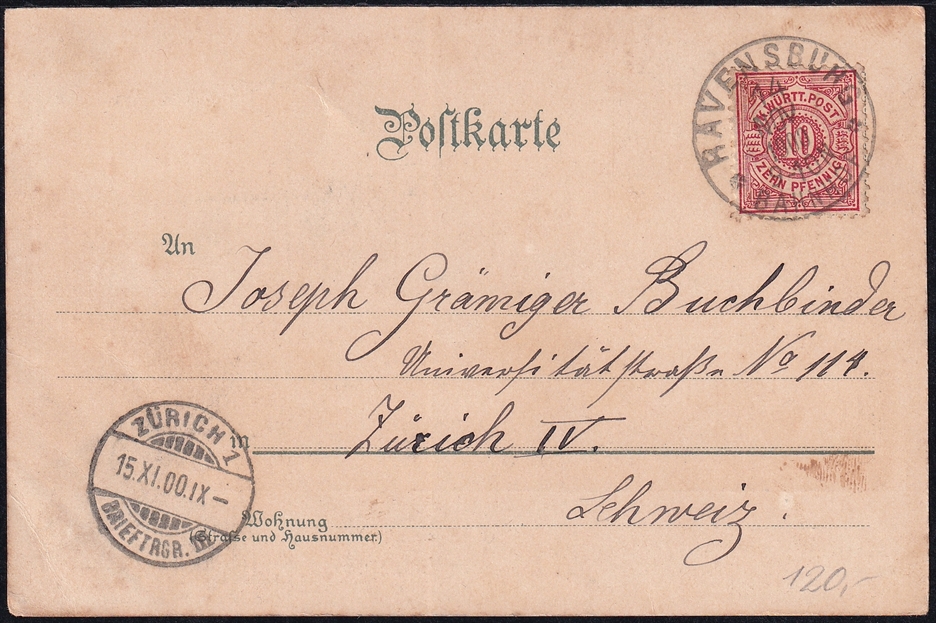 Postkarte
RAVENSBURG
14
NOV
BAHNH
K. WÜRTT. POST
10
ZEHN PFENNIG
An
Joseph Grämiger Buchbinder
Universitätstraße No 114.
in Zürich IV.
Schweiz.
Wohnung
(Strasse und Hausnummer.)
ZÜRICH 1
15.XI.00.IX–
BRIEFTRGR. III
120,-